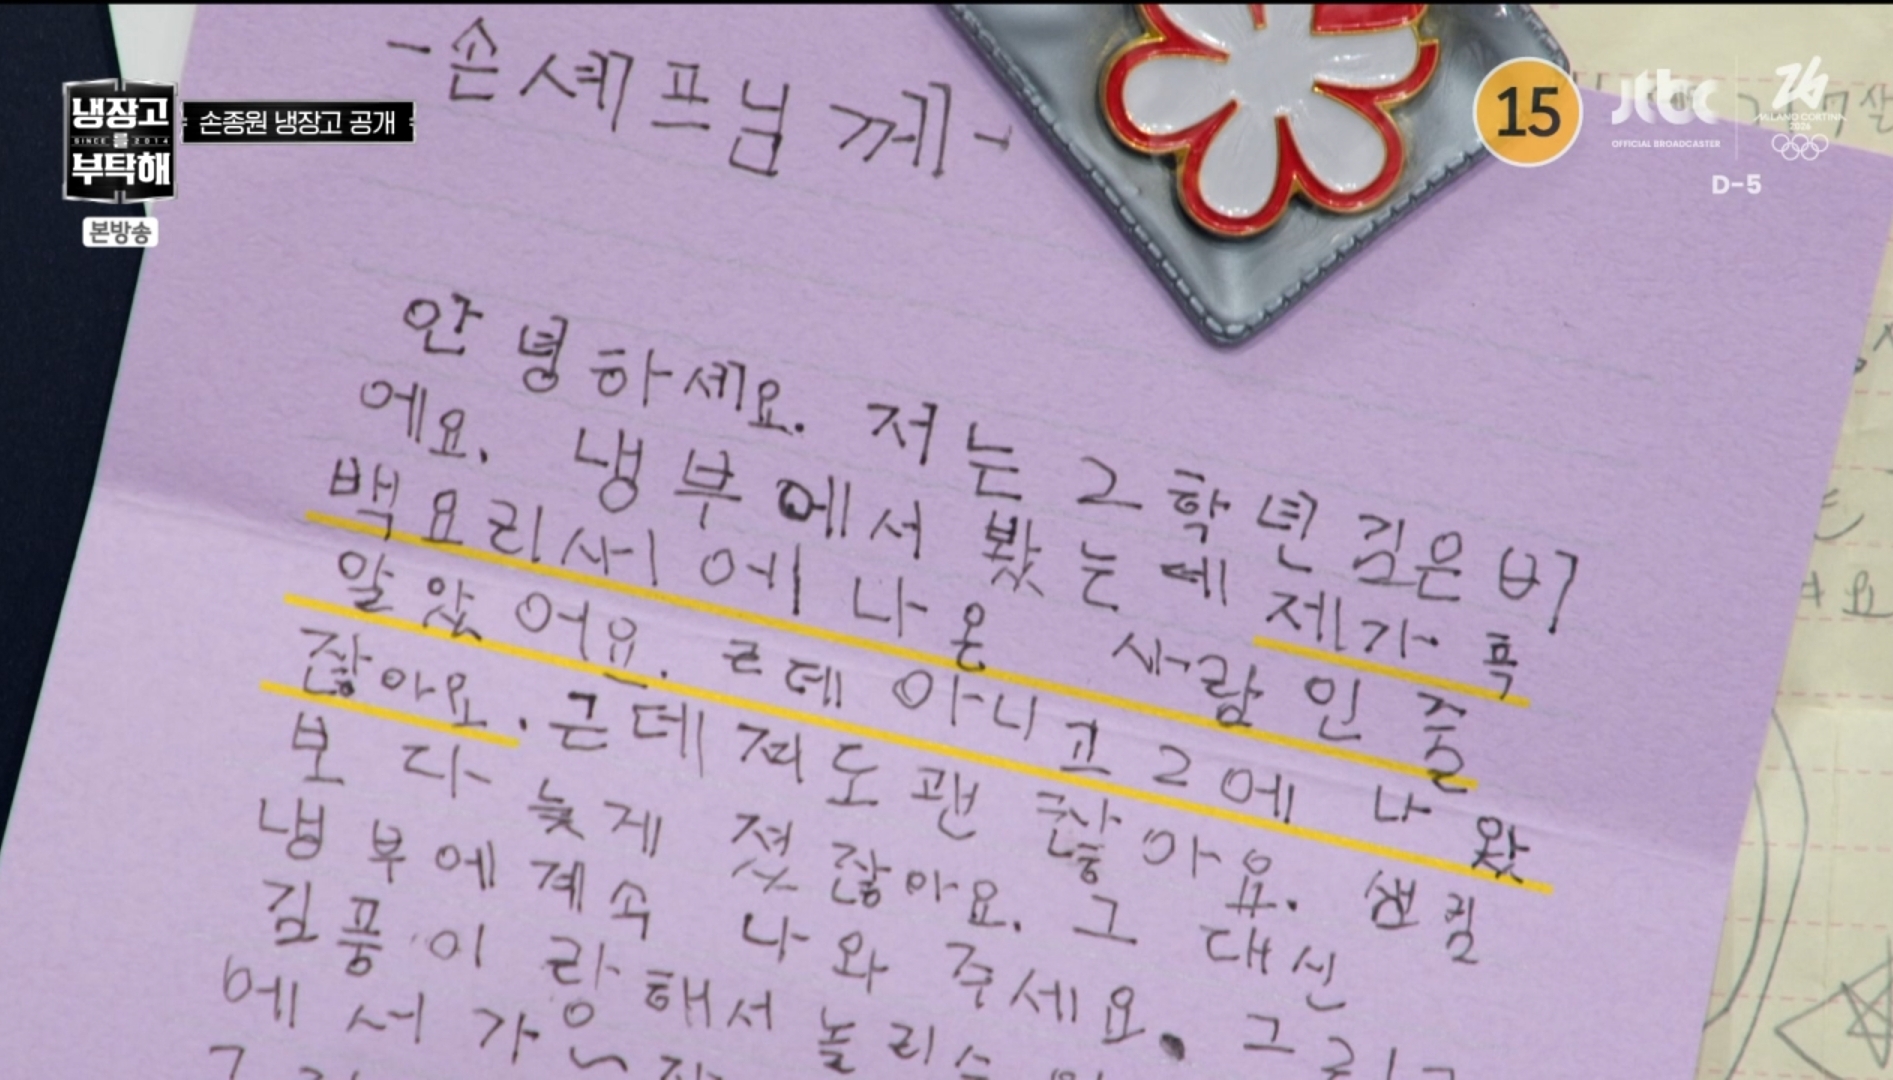 냉장고
SINCE 를 2014
부탁해
손종원 냉장고 공개
본방송
15
JTBC
OFFICIAL BROADCASTER
26
MILANO CORTINA
2026
D-5
-손셰프님께-
안녕하세요. 저는 2학년 김은비
에요. 냉부에서 봤는데 제가 흑
백요리사1에 나온 사람인줄
알았어요. 근데 아니고 2에 나왔
잖아요. 근데 져도 괜찮아요. 샘킴
보다 늦게 졌잖아요. 그 대신
냉부에 계속 나와 주세요. 그리고
김풍이랑 해서
에서